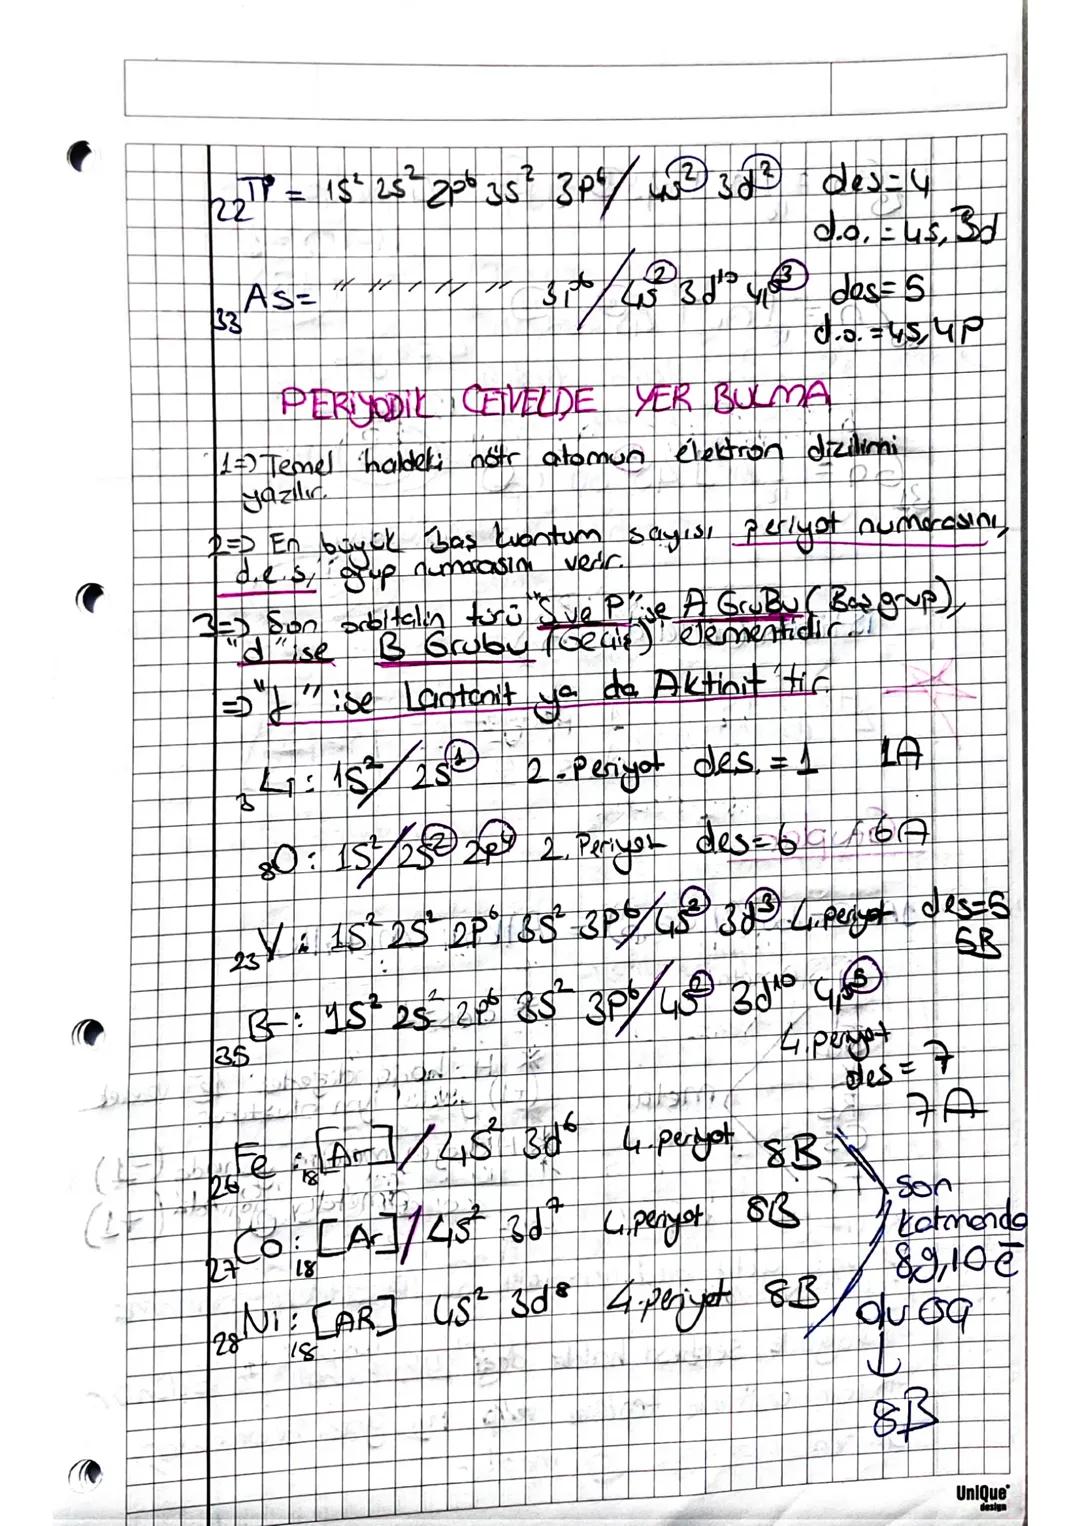 22Ti = 1s² 2s² 2p⁶ 3s² 3p⁶ / 4s² 3d² des=4
d.o. = 4s, 3d
33As = " " " " " 3p⁶ / 4s² 3d¹⁰ 4p³ des=5
d.o. = 4s, 4p
PERİYODİK CETVELDE YER BULMA
1=> Temel haldeki nötr atomun elektron dizilimi
yazılır.
2=> En büyük baş kuantum sayısı periyot numarasını,
d.e.s, grup numarasını verir.
3=> Son orbitalin türü "S ve P" ise A GruBu (Baş grup),
"d" ise B Grubu (Geçiş) elementidir.
=> "f" ise Lantanit ya da Aktinit'tir.
3Li: 1s² / 2s¹ 2.Periyot des.=1 1A
8O: 1s² / 2s² 2p⁴ 2.Periyot des=6 6A
23V: 1s² 2s² 2p⁶ 3s² 3p⁶ / 4s² 3d³ 4.periyot des=5
5B
35Br: 1s² 2s² 2p⁶ 3s² 3p⁶ / 4s² 3d¹⁰ 4p⁵
4.periyot
des = 7
7A
26Fe: 18[Ar] / 4s² 3d⁶ 4.periyot 8B
27Co: 18[Ar] / 4s² 3d⁷ 4.periyot 8B
28Ni: 18[AR] 4s² 3d⁸ 4.periyot 8B
son
katmanda
8,9,10 e⁻
olursa
↓
8B
UniQue
design